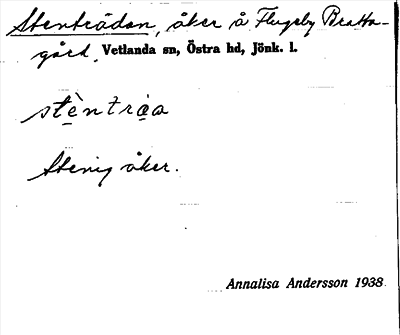 Stenträdan, åker å Flugeby Bratta-
gård, Vetlanda sn, Östra hd, Jönk. l.
stèntràa
Stenig åker.
Annalisa Andersson 1938